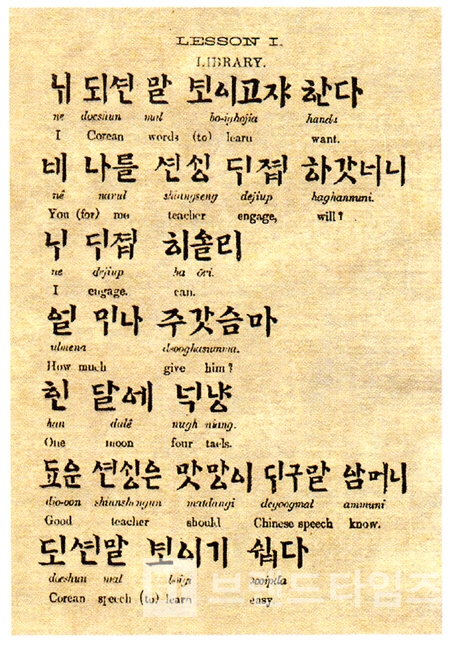 LESSON I.
LIBRARY.
ᄂᆡ 되션 말 보이고쟈 ᄒᆞᆫ다
ne doeshun mal bo-ighojia handa
I Corean words (to) learn want.
네 나를 션ᄉᆡᆼ ᄃᆡ졉 하갓너니
nê narul shiungseng dejiup haghannuni.
You (for) me teacher engage, will?
ᄂᆡ ᄃᆡ졉 ᄒᆡ올리
ne dejiup ha ōri.
I engage. can.
얼 ᄆᆡ나 주갓슴마
ulmena dsooghasumma.
How much give him?
ᄒᆞᆫ 달에 넉냥
han dalê nugh niang.
One moon four taels.
됴운 션ᄉᆡᆼ은 맛당이 ᄃᆡ구말 암머니
dio-oon shianshengun matdangi degoogmal ammuni
Good teacher should Chinese speech know.
되션말 보이기 쉽다
doeshun mal boigi sooipda
Corean speech (to) learn easy.
브랜드타임즈